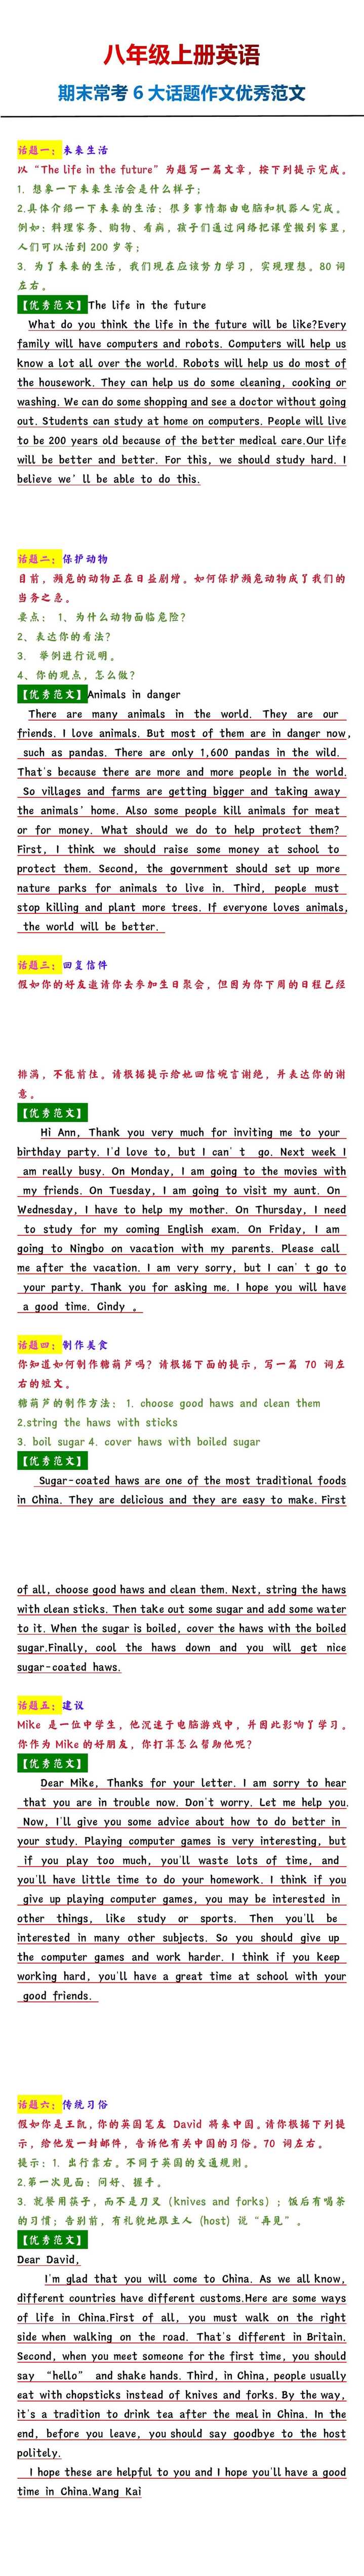 八年级上册英语
期末常考6大话题作文优秀范文
话题一：未来生活
以“The life in the future”为题写一篇文章，按下列提示完成。
1. 想象一下未来生活会是什么样子；
2.具体介绍一下未来的生活：很多事情都由电脑和机器人完成。
例如：料理家务、购物、看病，孩子们通过网络把课堂搬到家里，
人们可以活到200岁等；
3. 为了未来的生活，我们现在应该努力学习，实现理想。80词
左右。
【优秀范文】The life in the future
What do you think the life in the future will be like?Every
family will have computers and robots. Computers will help us
know a lot all over the world. Robots will help us do most of
the housework. They can help us do some cleaning, cooking or
washing. We can do some shopping and see a doctor without going
out. Students can study at home on computers. People will live
to be 200 years old because of the better medical care.Our life
will be better and better. For this, we should study hard. I
believe we’ll be able to do this.
话题二：保护动物
目前，濒危的动物正在日益剧增。如何保护濒危动物成了我们的
当务之急。
要点： 1、为什么动物面临危险？
2、表达你的看法？
3. 举例进行说明。
4、你的观点，怎么做？
【优秀范文】Animals in danger
There are many animals in the world. They are our
friends. I love animals. But most of them are in danger now,
such as pandas. There are only 1,600 pandas in the wild.
That's because there are more and more people in the world.
So villages and farms are getting bigger and taking away
the animals’ home. Also some people kill animals for meat
or for money. What should we do to help protect them?
First, I think we should raise some money at school to
protect them. Second, the government should set up more
nature parks for animals to live in. Third, people must
stop killing and plant more trees. If everyone loves animals,
the world will be better.
话题三：回复信件
假如你的好友邀请你去参加生日聚会，但因为你下周的日程已经
排满，不能前往。请根据提示给她回信婉言谢绝，并表达你的谢
意。
【优秀范文】
Hi Ann, Thank you very much for inviting me to your
birthday party. I'd love to, but I can’t go. Next week I
am really busy. On Monday, I am going to the movies with
my friends. On Tuesday, I am going to visit my aunt. On
Wednesday, I have to help my mother. On Thursday, I need
to study for my coming English exam. On Friday, I am
going to Ningbo on vacation with my parents. Please call
me after the vacation. I am very sorry, but I can’t go to
your party. Thank you for asking me. I hope you will have
a good time. Cindy 。
话题四：制作美食
你知道如何制作糖葫芦吗？请根据下面的提示，写一篇 70 词左
右的短文。
糖葫芦的制作方法： 1. choose good haws and clean them
2.string the haws with sticks
3. boil sugar 4. cover haws with boiled sugar
【优秀范文】
Sugar-coated haws are one of the most traditional foods
in China. They are delicious and they are easy to make. First
of all, choose good haws and clean them. Next, string the haws
with clean sticks. Then take out some sugar and add some water
to it. When the sugar is boiled, cover the haws with the boiled
sugar.Finally, cool the haws down and you will get nice
sugar-coated haws.
话题五：建议
Mike 是一位中学生，他沉迷于电脑游戏中，并因此影响了学习。
你作为 Mike 的好朋友，你打算怎么帮助他呢？
【优秀范文】
Dear Mike, Thanks for your letter. I am sorry to hear
that you are in trouble now. Don't worry. Let me help you.
Now, I'll give you some advice about how to do better in
your study. Playing computer games is very interesting, but
if you play too much, you'll waste lots of time, and
you'll have little time to do your homework. I think if you
give up playing computer games, you may be interested in
other things, like study or sports. Then you'll be
interested in many other subjects. So you should give up
the computer games and work harder. I think if you keep
working hard, you'll have a great time at school with your
good friends.
话题六：传统习俗
假如你是王凯，你的英国笔友 David 将来中国。请你根据下列提
示，给他发一封邮件，告诉他有关中国的习俗。70 词左右。
提示：1. 出行靠右。不同于英国的交通规则。
2.第一次见面：问好、握手。
3. 就餐用筷子，而不是刀叉（knives and forks）；饭后有喝茶
的习惯；告别前，有礼貌地跟主人 (host) 说“再见”。
【优秀范文】
Dear David,
I'm glad that you will come to China. As we all know,
different countries have different customs.Here are some ways
of life in China.First of all, you must walk on the right
side when walking on the road. That's different in Britain.
Second, when you meet someone for the first time, you should
say “hello” and shake hands. Third, in China, people usually
eat with chopsticks instead of knives and forks. By the way,
it's a tradition to drink tea after the meal in China. In the
end, before you leave, you should say goodbye to the host
politely.
I hope these are helpful to you and I hope you'll have a good
time in China.Wang Kai